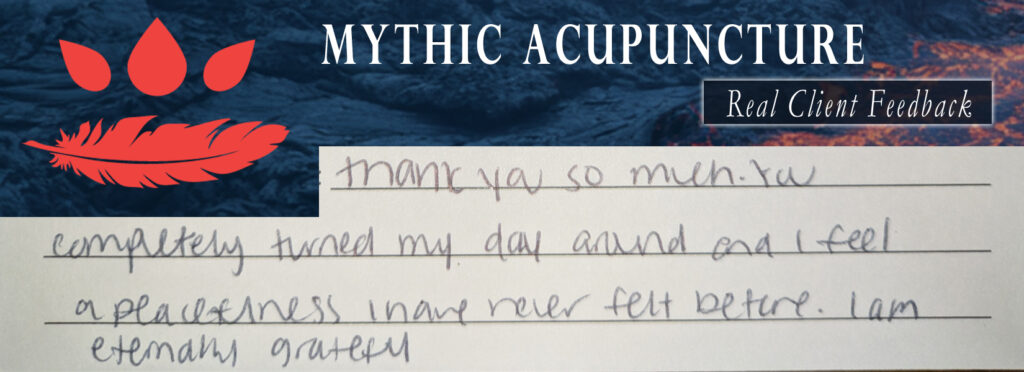 MYTHIC ACUPUNCTURE
Real Client Feedback
thank you so much. You
completely turned my day around and I feel
a peacefulness I have never felt before. I am
eternally grateful